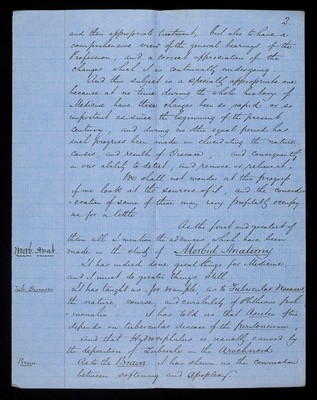 2.
and their appropriate treatment, but also to have a
comprehensive view of the general bearings of the
Profession, and a correct appreciation of the
changes which it is continually undergoing.
And this subject is a specially appropriate one
because at no time during the whole history of
Medicine have these changes been so rapid or so
important as since the beginning of the present
Century, and during no other equal period has
such progress been made in elucidating the nature
causes, and results of Diseases, and consequently
in our ability to detect, and remove or relieve it.
We shall not wonder at this progress
if we look at the sources of it, and the consider
-ation of some of these may very profitably occupy
us for a little
As the first and greatest of
them all I mention the advances which have been
Morb. Anat. made in the study of Morbid Anatomy.
It has indeed done great things for Medicine,
and it must do greater things still
Tub. Diseases It has taught us, for example, as to Tubercular diseases,
the nature, course, and curability of Phthisis Pul
-monalis. it has told us that Ascites often
depends on tubercular disease of the Peritoneum,
And that Hydrocephalus is usually caused by
the deposition of Tubercle in the Arachnoid
Brain As to the Brain it has shown us the connection
between softening and Apoplexy